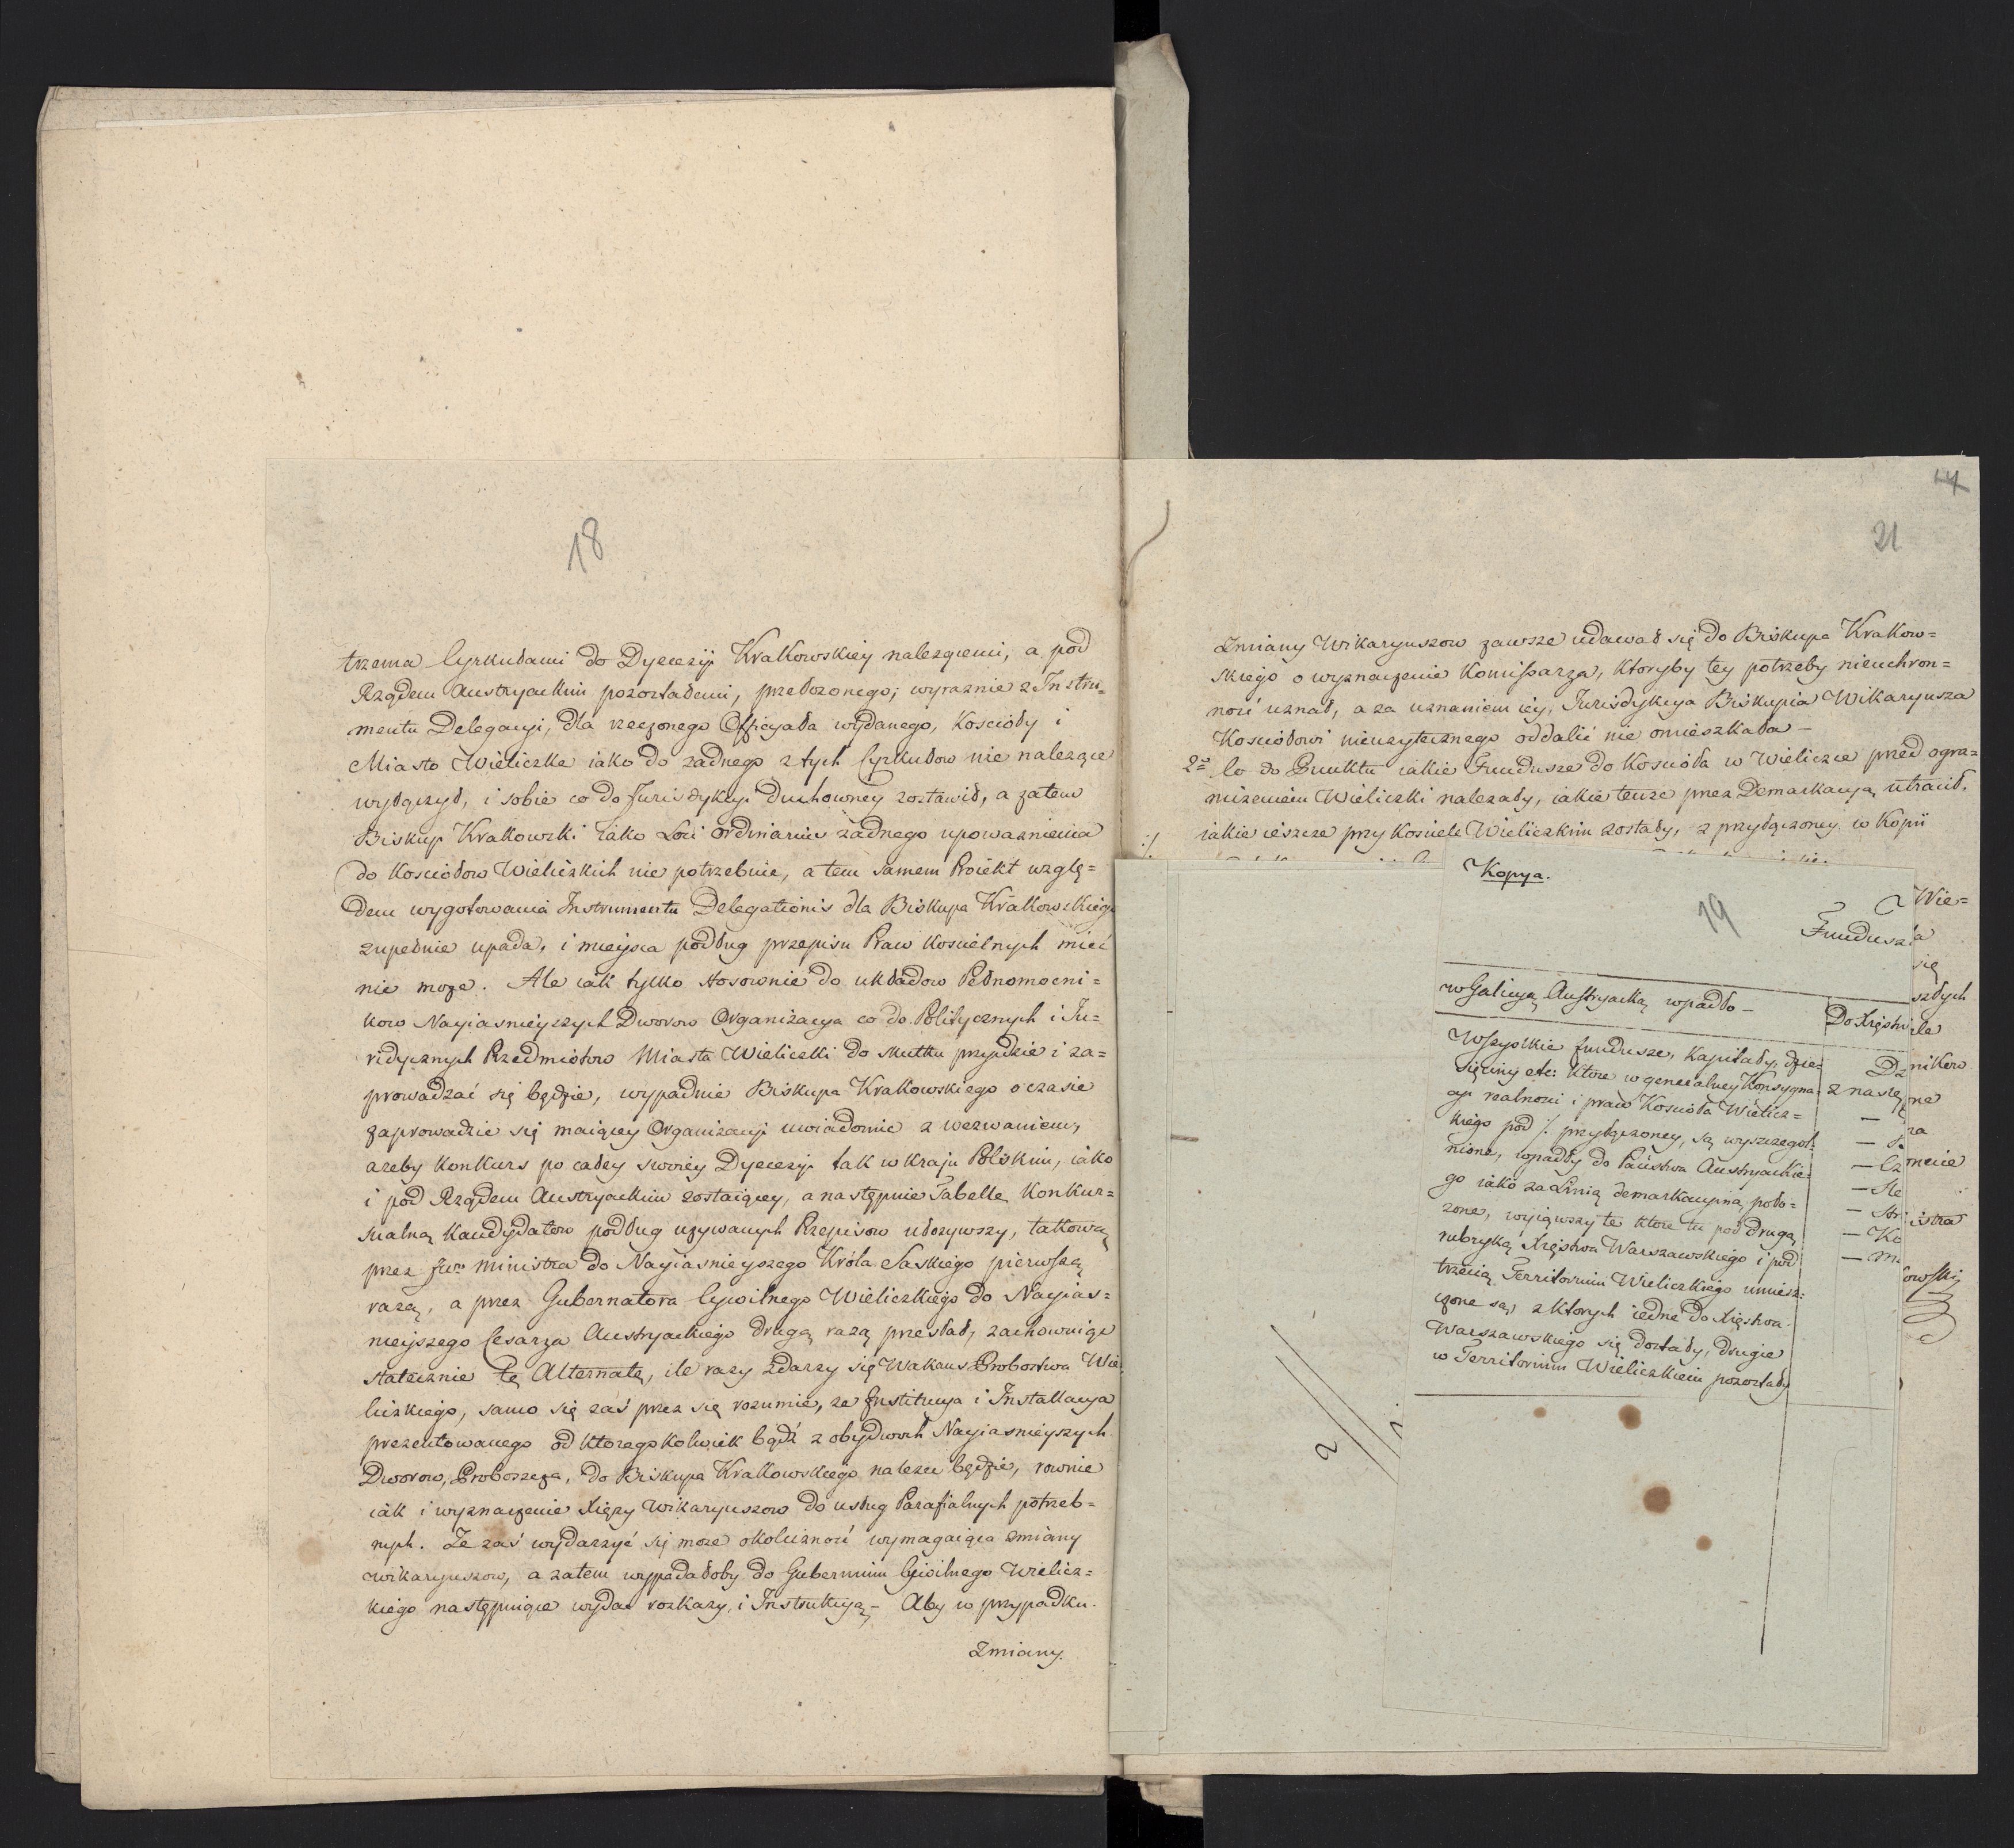 18
trzema Cyrkułami do Dyecezyi Krakowskiey należącemi, a pod
Rządem Austryackim pozostałemi, przełożonego; wyraznie z Instru-
mentu Delegacyi, dla rzeczonego Officyała wydanego, Kościoły i
Miasto Wieliczka iako do żadnego z tych Cyrkułow nie należące
wyłączył, i sobie co do Jurisdykcyi Duchowney zostawił, a zatem
Biskup Krakowski iako Loci Ordinarius żadnego upoważnienia
do Kościołow Wielickich nie potrzebuie, a tem samem Proiekt wzglę=
dem wygotowania Instrumentu Delegationis dla Biskupa Krakowskiego
zupełnie upada, i mieysca podług przepisu Praw Kościelnych mieć
nie może. Ale iak tylko stosownie do układow Pełnomocni=
kow Nayiasnieyszych Dworow Organizacya co do Politycznych i Ju=
ridycznych Przedmiotow Miasta Wieliczki do skutku przyidzie i za=
prowadzać się będzie, wypadnie Biskupa Krakowskiego o czasie
zaprowadzić się maiącey Organizacyi uwiadomić z wezwaniem,
ażeby Konkurs po całey swoiey Dyecezyi tak w Kraju Polskim, iako
i pod Rządem Austryackim zostaiącey, a następnie Tabellę Konkur=
sualną Kandydatow podług używanych Przepisow ułożywszy, takową
przez Ministra do Nayiasnieyszego Króla Saskiego pierwszą
razą, a przez Gubernatora Cywilnego Wielickiego do Nayias=
nieyszego Cesarza Austryackiego drugą razą przesłał, zachowuiąc
statecznie tę Alternatę, ile razy zdarzy się Wakans Probostwa Wie=
lickiego, samo się zaś przez się rozumie, że Instytucya i Installacya
prezentowanego od ktoregokolwiek bądź z obydwoch Nayiasnieyszych
Dworow, Proboszcza, do Biskupa Krakowskiego należeć będzie, rownie
iak i wyznaczenie Xięży Wikaryuszow do usług Parafialnych potrzeb=
nych. Że zaś wydarzyć się może okoliczność wymagaiąca zmiany
Wikaryuszow, a zatem wypadałoby do Gubernium Cywilnego Wielicz=
kiego następuiące wydać rozkazy, i Instrukcyą – Aby w przypadku
Zmiany.
21
Zmiany Wikaryuszow zawsze udawał się do Biskupa Krakow=
skiego o wyznaczenie Komissarza, ktoryby tey potrzeby nieuchron=
ność uznał, a za uznaniem iey, Jurisdykcya Biskupia Wikaryusza
Kościołowi nieużytecznego oddalić nie omieszkała –
2o Co do Punktu iakie Fundusze do Kościoła w Wieliczce przed ogra=
niczeniem Wieliczki należały, iakie tenże przez Demarkacyą utracił,
iakie ieszcze przy Kościele Wielickim zostały, z przyłączoney w Kopii
Kopya.
19
Fundusz
w Galicyą Austryacką wpadło –
Do Xięstw
Wszystkie fundusze, Kapitały, dzie=
sięciny etc: ktore w generalney Konsygna=
cyi realności i praw Kościoła Wielicz=
kiego pod ⁒ przyłączoney, są wyszczegól=
nione, wpadły do Państwa Austryackie=
go iako za Linią demarkacyiną poło=
żone, wyiąwszy te ktore tu pod drugą
rubryką Xięstwa Warszawskiego i pod
trzecią Territorium Wielickiego umiesz=
czone są, z ktorych iedne do Xięstwa
Warszawskiego się dostały, drugie
w Territorium Wielickiem pozostały
Wie=
się
szłych
nikow